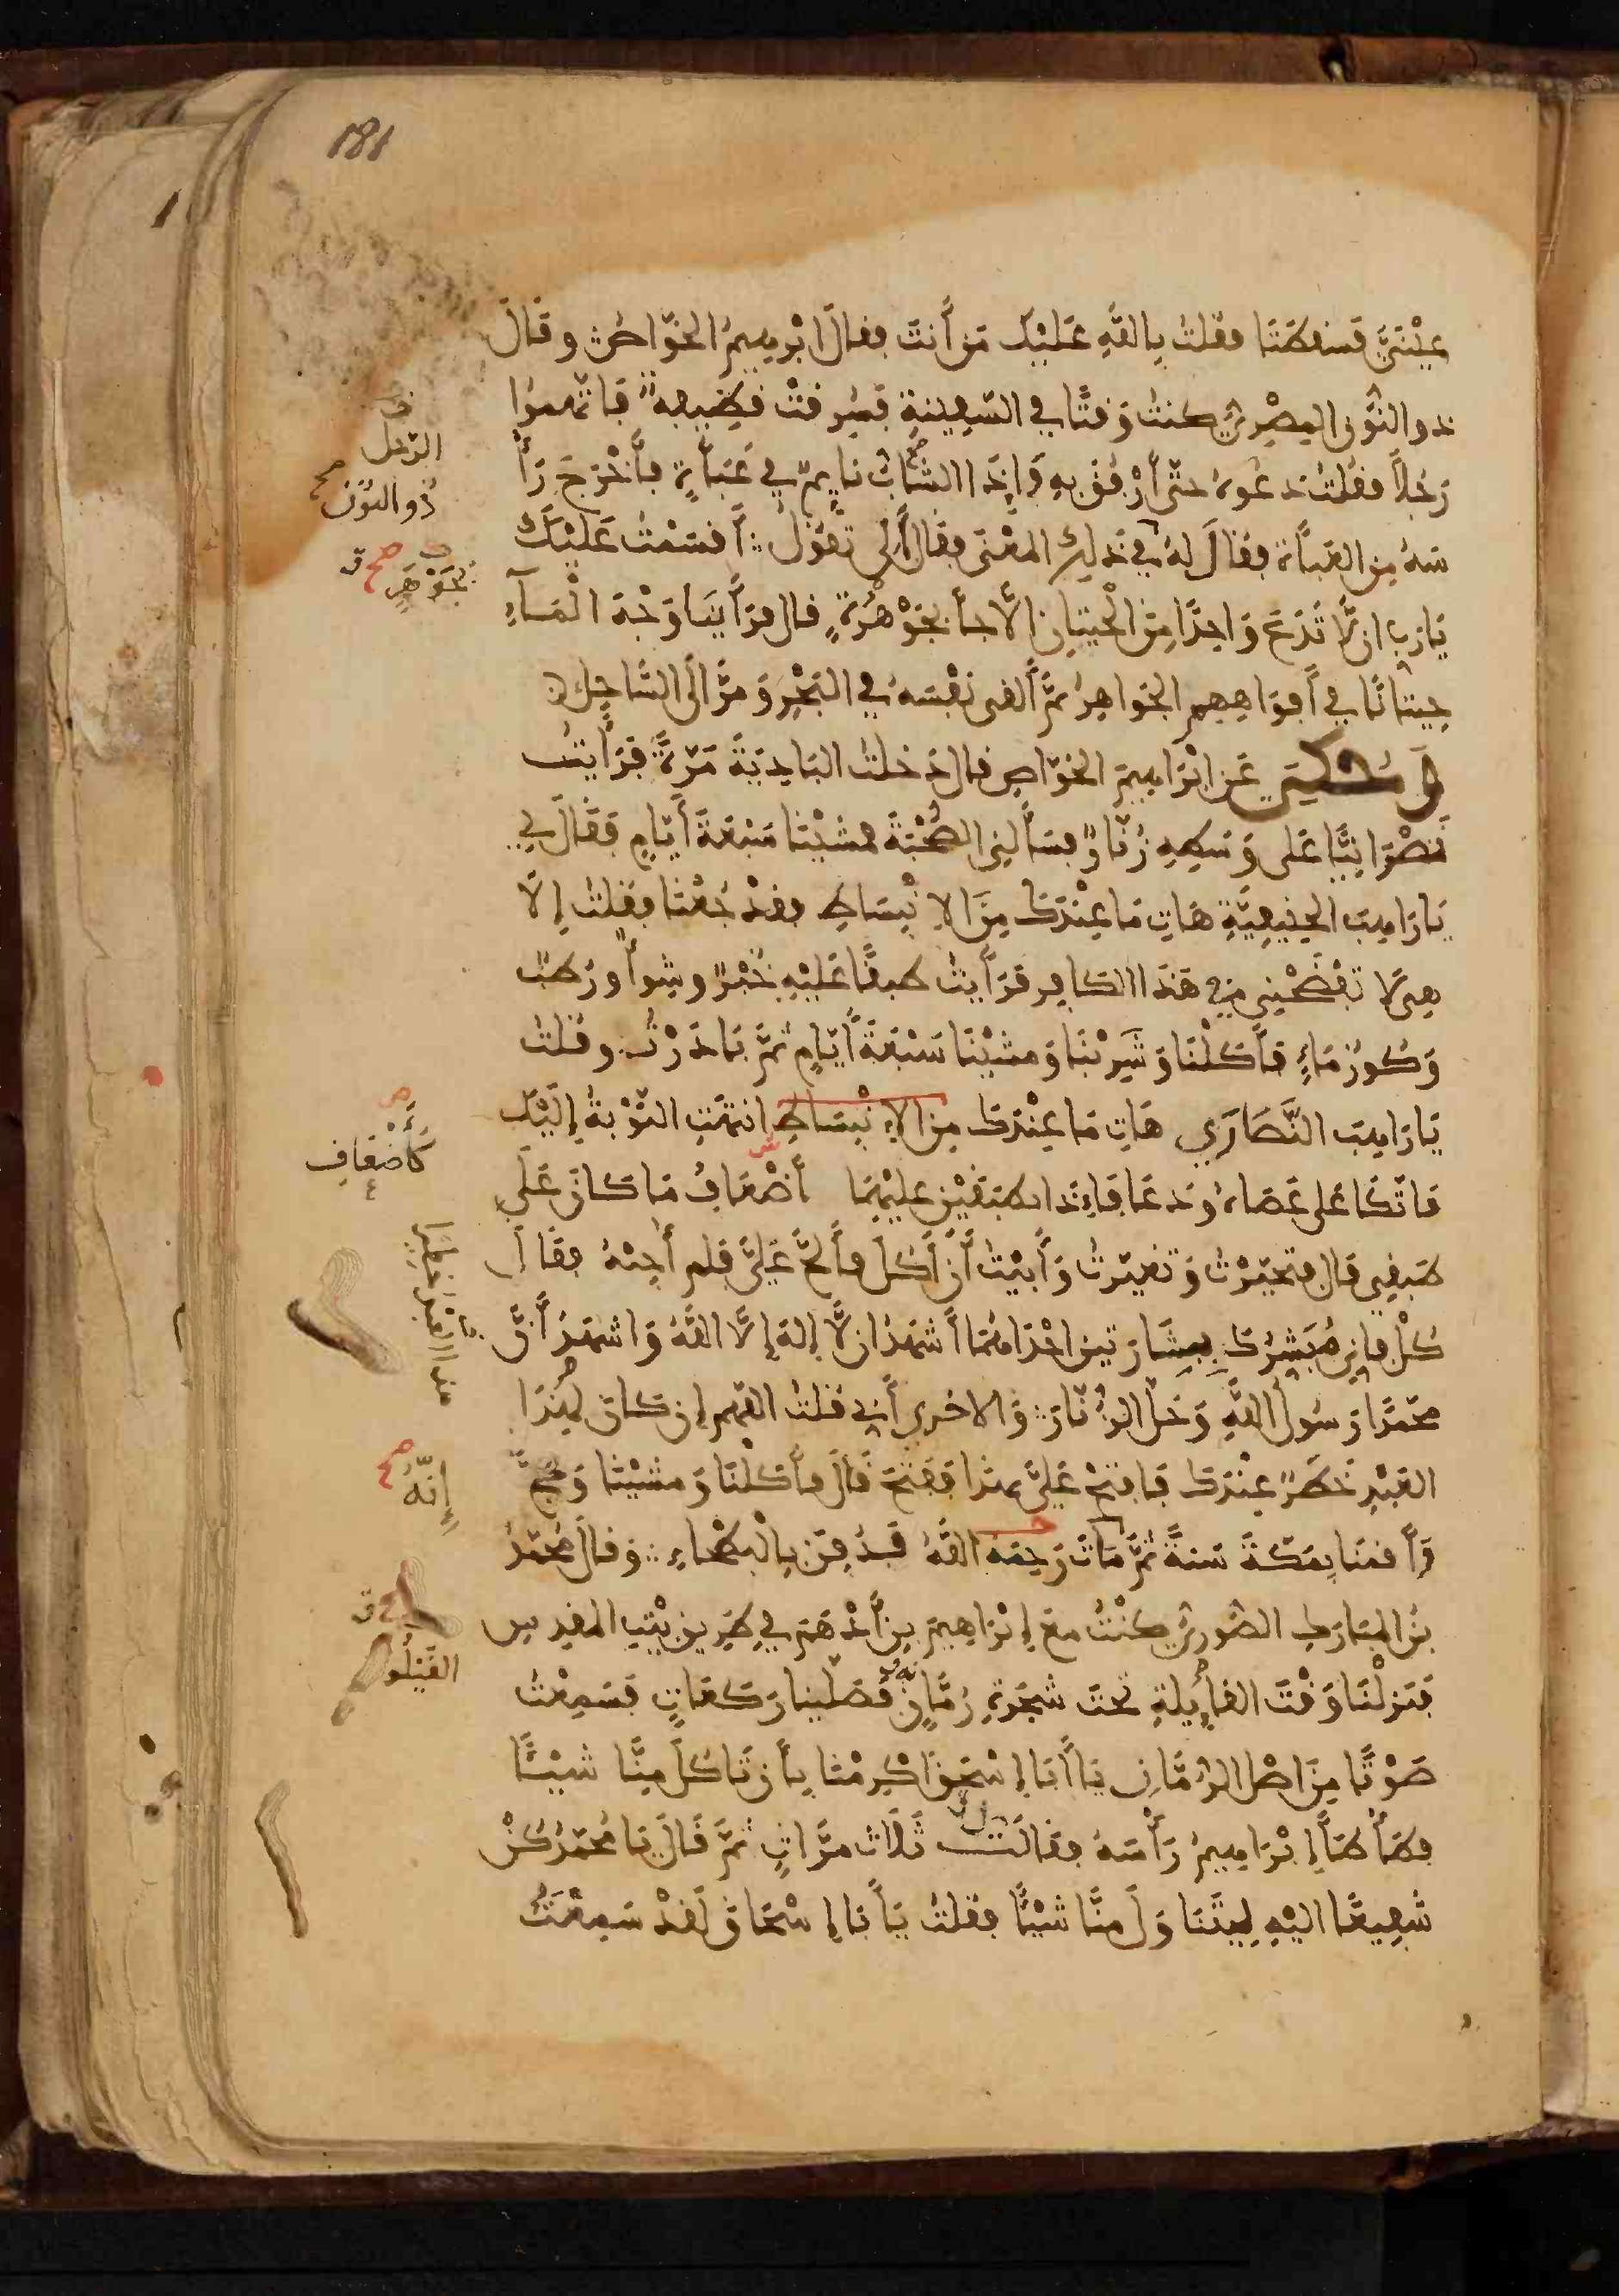 181
عَيْنَيَّ فَسَقَطَتَا فقلتُ بِاللَّهِ عَلَيْكَ مَن أَنتَ فقالَ ابْرهِيمُ الخَوّاصُ وقَالَ
ذو النُّونِ المِصْرِيُّ كنتُ وَقتًا في السَّفِينةِ فَسُرِقَتْ قَطِيفةٌ فَاتَّهموا
رَجُلاً فقُلتُ دعُوهُ حتَّى أَرْفُقَ بهِ فَإِذَا الشَّابُّ نَايِمٌ في عَبَاءَةٍ فأَخْرَجَ رَأْ
سَهُ مِنَ العَبَاءَةِ فقالَ لهُ في ذلكَ المعْنَى فقالَ أَلِي تَقُولُ أَقسَمْتُ عَلَيْكَ
يَا رَبِّ ان لَّا تَدَعَ وَاحِدًا مِنَ الْحِيتانِ الَّا جاءَ بجَوْهَرَةٍ قال فرَأَيْنَا وَجْهَ الْمَآءِ
حِيتَانًا في أَفوَاهِهِم الجَواهِرُ ثمَّ أَلقى نَفْسَهُ في البَحْرِ وَمرَّ الَى السَّاحِلِ
وَحُكِيَ عَنِ ابْرَاهِيمَ الخوّاصِ قال دَخلتُ البَادِيَةَ مَرّةً فرَأَيتُ
نَصْرَانِيًّا عَلى وَسَطِهِ زُنّارٌ فسَأَلَنِي الصُّحْبَةَ فمشَيْنَا سَبْعَةَ أَيّامٍ فقَالَ لِي
يَا رَاهِبَ الحَنِيفِيَّةِ هَاتِ مَا عِنْدَكَ مِنَ الِانْبِسَاطِ فقدْ جُعْنَا فقلتُ إلَا
هِي لَا تَفْضَحْنِي مِن هَذَا الكَافِر فرَأَيتُ طبقًا عَلَيْهِ خُبْزٌ وشِواءٌ ورُطبٌ
وَكُوزُ مَاءٍ فأَكَلْنَا وَشَرِبْنَا وَمشَيْنَا سَبْعَةَ أَيّامٍ ثمَّ بَادَرْتُ وقلتُ
يَا رَاهِبَ النَّصَارَى هَاتِ مَا عِنْدَكَ مِنَ الِانْبِسَاطِ انتهَتِ النَّوْبةُ إِلَيْكَ
فَاتَّكَأَ عَلى عَصَاهُ وَدعَا فَاذا بطَبَقَيْنِ عليْهِمَا أَضْعَافُ مَا كَانَ عَلَى
طَبَقِي قال فتحَيّرْتُ وَتغيّرتُ وَأَبَيْتُ أَن أَكلَ فأَلحَّ عَلَيَّ فلم أجِبْهُ فقالَ
كُلْ فإِني مُبَشِّرُكَ بِبِشَارَتينِ احْدَاهُمَا أَشهَدُ ان لَّا إلهَ إلَّا اللَّهُ وَاشهَدُ أَنَّ
محَمَّدًا رَسُولُ اللَّهِ وَحَلَّ الزُّنّارَ وَالاخرى أَني قلتُ اللّهم إن كانَ لِهَذَا
العَبْدِ خَطَرٌ عِنْدَكَ فَافتحْ عَلَيَّ بهذَا ففَتحَ قَالَ فأَكلْنَا وَمشَيْنَا وَحَجَّ
وَأَقمْنَا بمَكّةَ سَنةً ثُمَّ مَاتَ رَحِمَهُ اللَّهُ فَدُفِنَ بِالْبَطْحَاءِ وَقالَ مُحَمَّدُ
بنُ المبَارَكِ الصُّورِيُّ كنْتُ معَ إبْرَاهِيمَ بنِ أَدْهَمَ في طَرِيقِ بَيْتِ المقدِسِ
فَنزلْنَا وَقْتَ القَايِلةِ تحتَ شجَرَةِ رُمَّانٍ فصَلّينا رَكعَاتٍ فسَمِعْتُ
صَوْتًا مِنَ اصْل الرُّمَّانِ يَا أَبَا إِسْحَقَ اكْرِمْنَا بِأَن تَاكُلَ مِنَّا شَيْئًا
فطَأْطَأَ ابْرَاهِيمُ رَأْسَهُ فقالَتْ ثَلَاثَ مرَّاتٍ ثمَّ قَالَ يَا مُحَمَّدُ كُنْ
شَفِيعًا اليْهِ لِيتنَاوَلَ منَّا شَيْئًا فقلتُ يَا أَبَا إِسْحَاقَ لَقدْ سَمِعْتَ
الرّجل
ذُو النُّون
صح
بجَوْهَرٍ
صح
كَأَضْعَافِ
إِنّهُ
صح
القَيْلُو